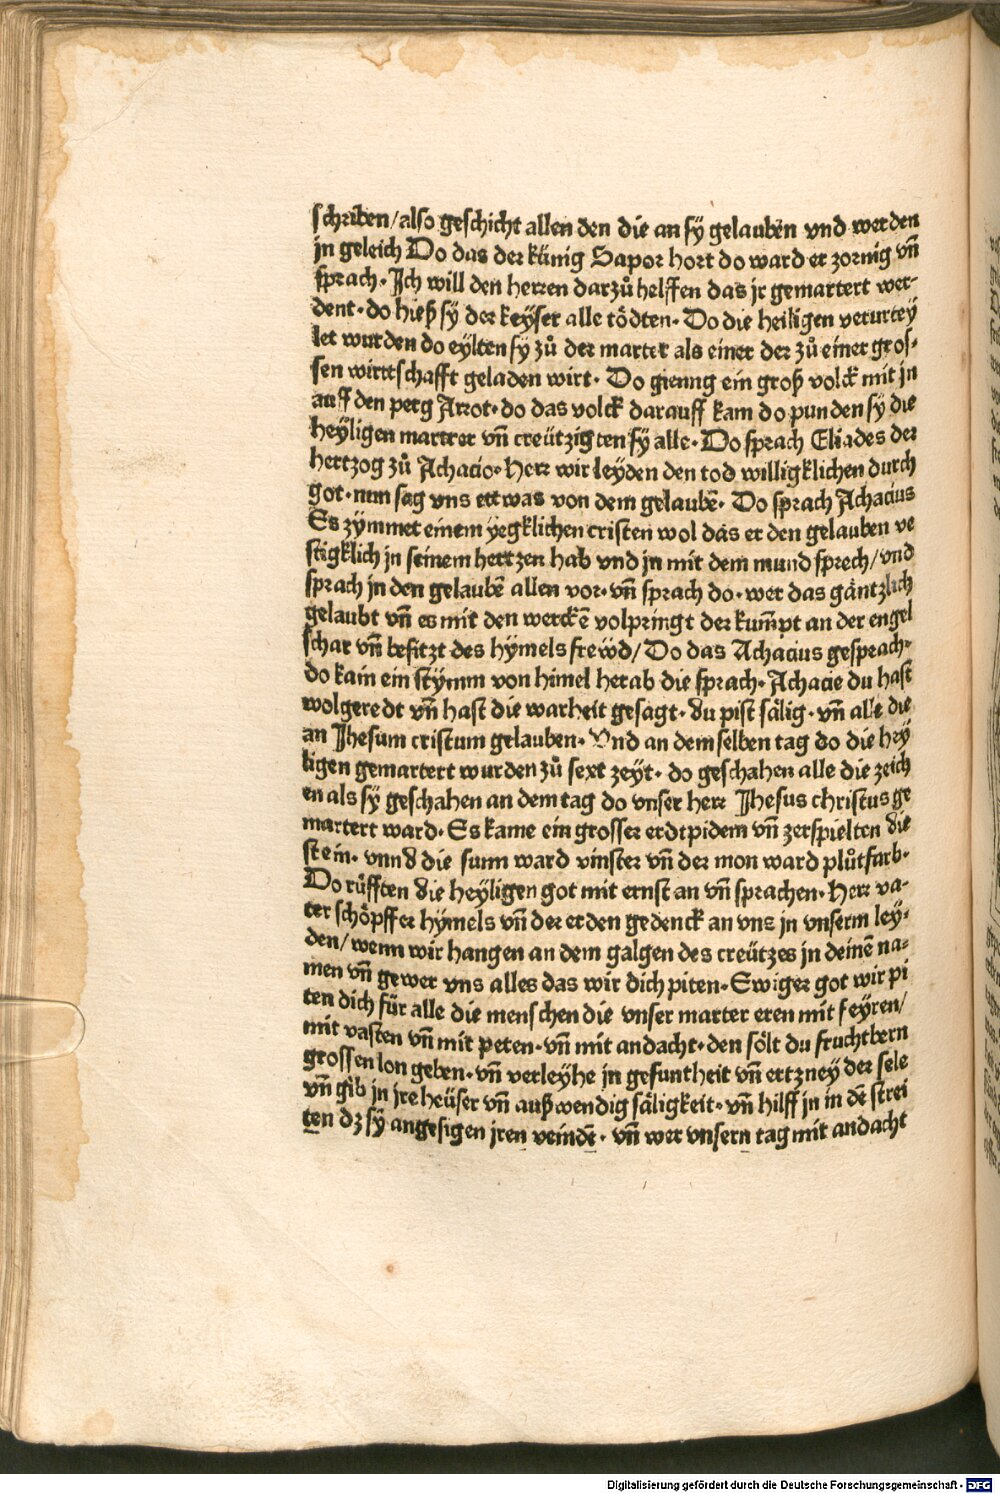 schriben/also geschicht allen den die an sÿ gelauben vnd werden
jn geleich Do das der künig Sapor hort do ward er zornig vñ
sprach· Jch will den herren darzů helffen das jr gemartert wer-
dent· do hieß sÿ der keÿser alle tödten· Do die heiligen verurteÿ
let wurden do eÿlten sÿ zů der marter als einer der zů einer gros-
sen wirttschafft geladen wirt· Do gienng ein groß volck mit jn
auff den perg Arrot· do das volck darauff kam do punden sÿ die
heÿligen martrer vñ creützigten sÿ alle· Do sprach Eliades der
hertzog zů Achacio· Herr wir leÿden den tod willigklichen durch
got· nun sag vns ettwas von dem gelaubẽ· Do sprach Achacius
Es zÿmmet einem yegklichen cristen wol das er den gelauben ve
stigklich jn seinem hertzen hab vnd jn mit dem mund sprech/vnd
sprach jn den gelaubẽ allen vor· vñ sprach do· wer das gäntzlich
gelaubt vñ es mit den werckẽ volpringt der kum̃pt an der engel
schar vñ besitzt des hÿmels frewd/Do das Achacius gesprach·
do kam ein stÿmm von himel herab die sprach· Achacie du hast
wolgeredt vñ hast die warheit gesagt· du pist sälig· vñ alle die
an Jhesum cristum gelauben· Vnd an dem selben tag do die heÿ
ligen gemartert wurden zů sext zeÿt· do geschahen alle die zeich
en als sÿ geschahen an dem tag do vnser herr Jhesus christus ge
martert ward· Es kame ein grosser erdtpidem vñ zerspielten die
stein· vnnd die sunn ward vinster vñ der mon ward plůtfarb·
Do růfften die heÿligen got mit ernst an vñ sprachen· Herr va-
ter schöpffer hÿmels vñ der erden gedenck an vns jn vnserm leÿ-
den/wenn wir hangen an dem galgen des creützes jn deinẽ na-
men vñ gewer vns alles das wir dich piten· Ewiger got wir pi
ten dich für alle die menschen die vnser marter eren mit feÿren/
mit vasten vñ mit peten· vñ mit andacht· den sölt du fruchtbern
grossen lon geben· vñ verleÿhe jn gesuntheit vñ ertzneÿ der sele
vñ gib jn jre heüser vñ außwendig säligkeit· vñ hilff jn in dẽ strei
ten dz sÿ angesigen jren veindẽ· vñ wer vnsern tag mit andacht
Digitalisierung gefördert durch die Deutsche Forschungsgemeinschaft - DFG